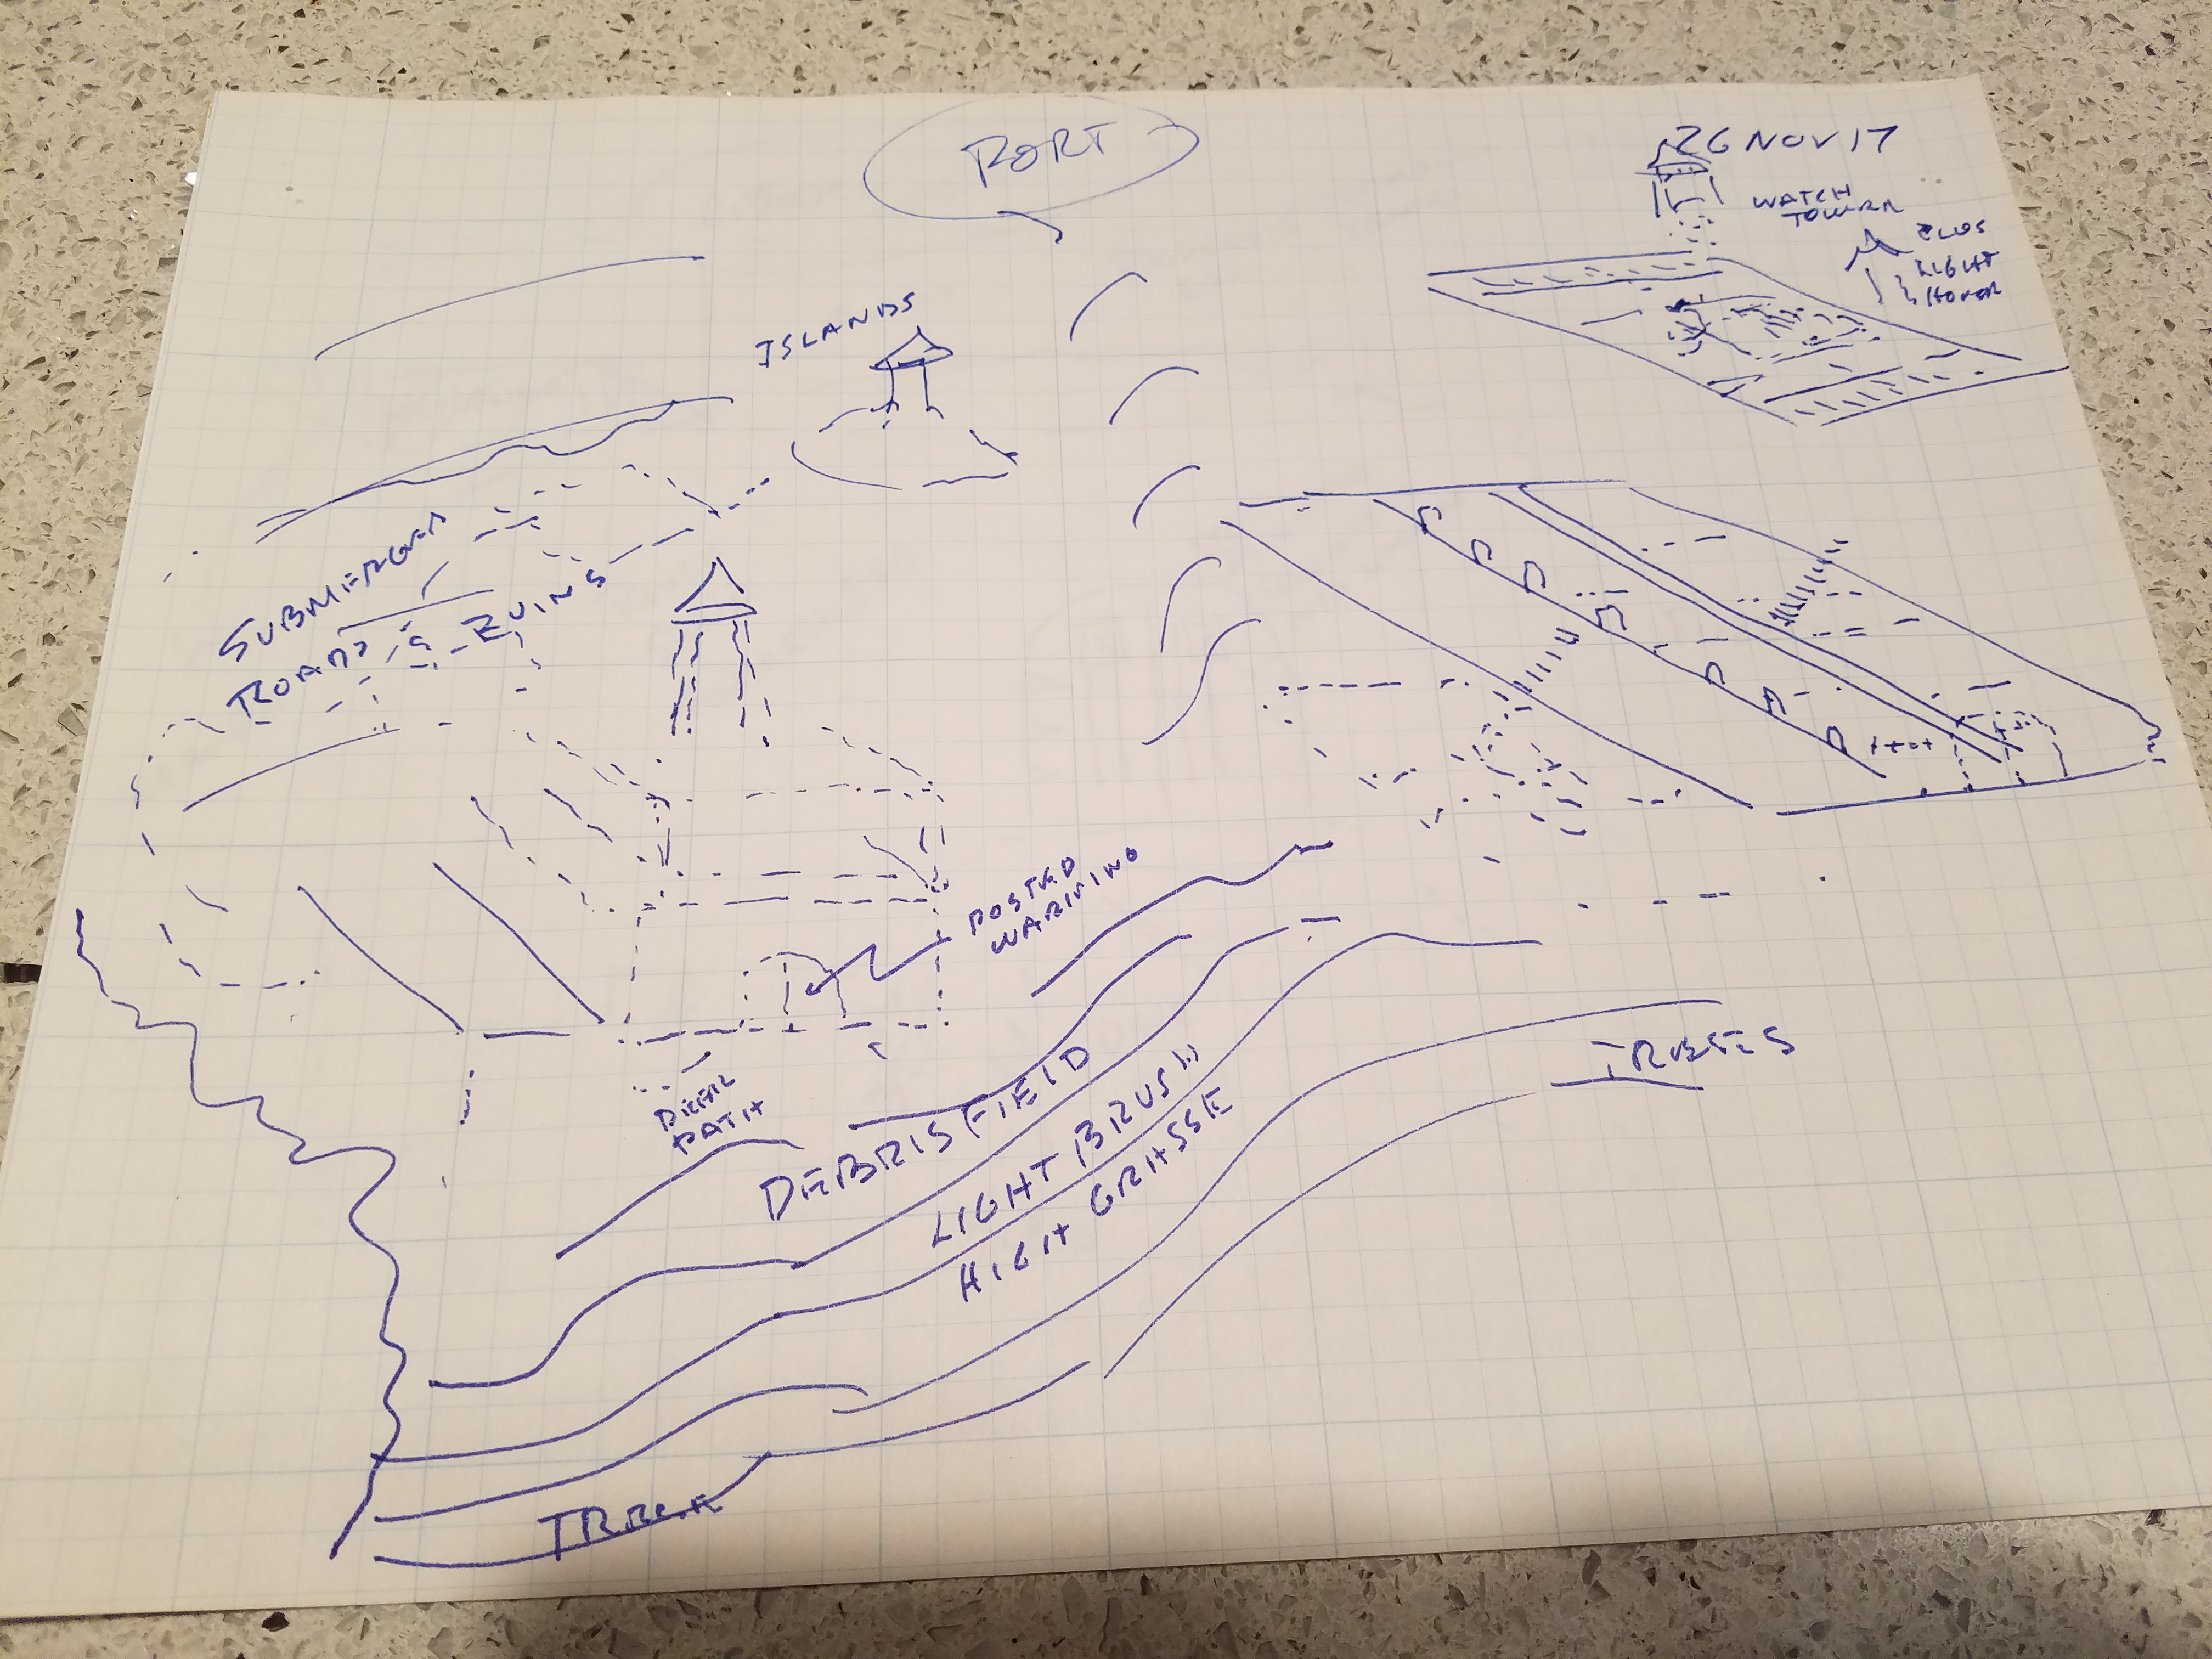 PORT
26 NOV 17
WATCH
TOWER
PLUS
LIGHT
HOUSE
ISLANDS
SUBMERGED
ROADS & RUINS
POSTED
WARNING
PATH
DEBRIS FIELD
LIGHT BRUSH
HIGH GRASSE
TREES